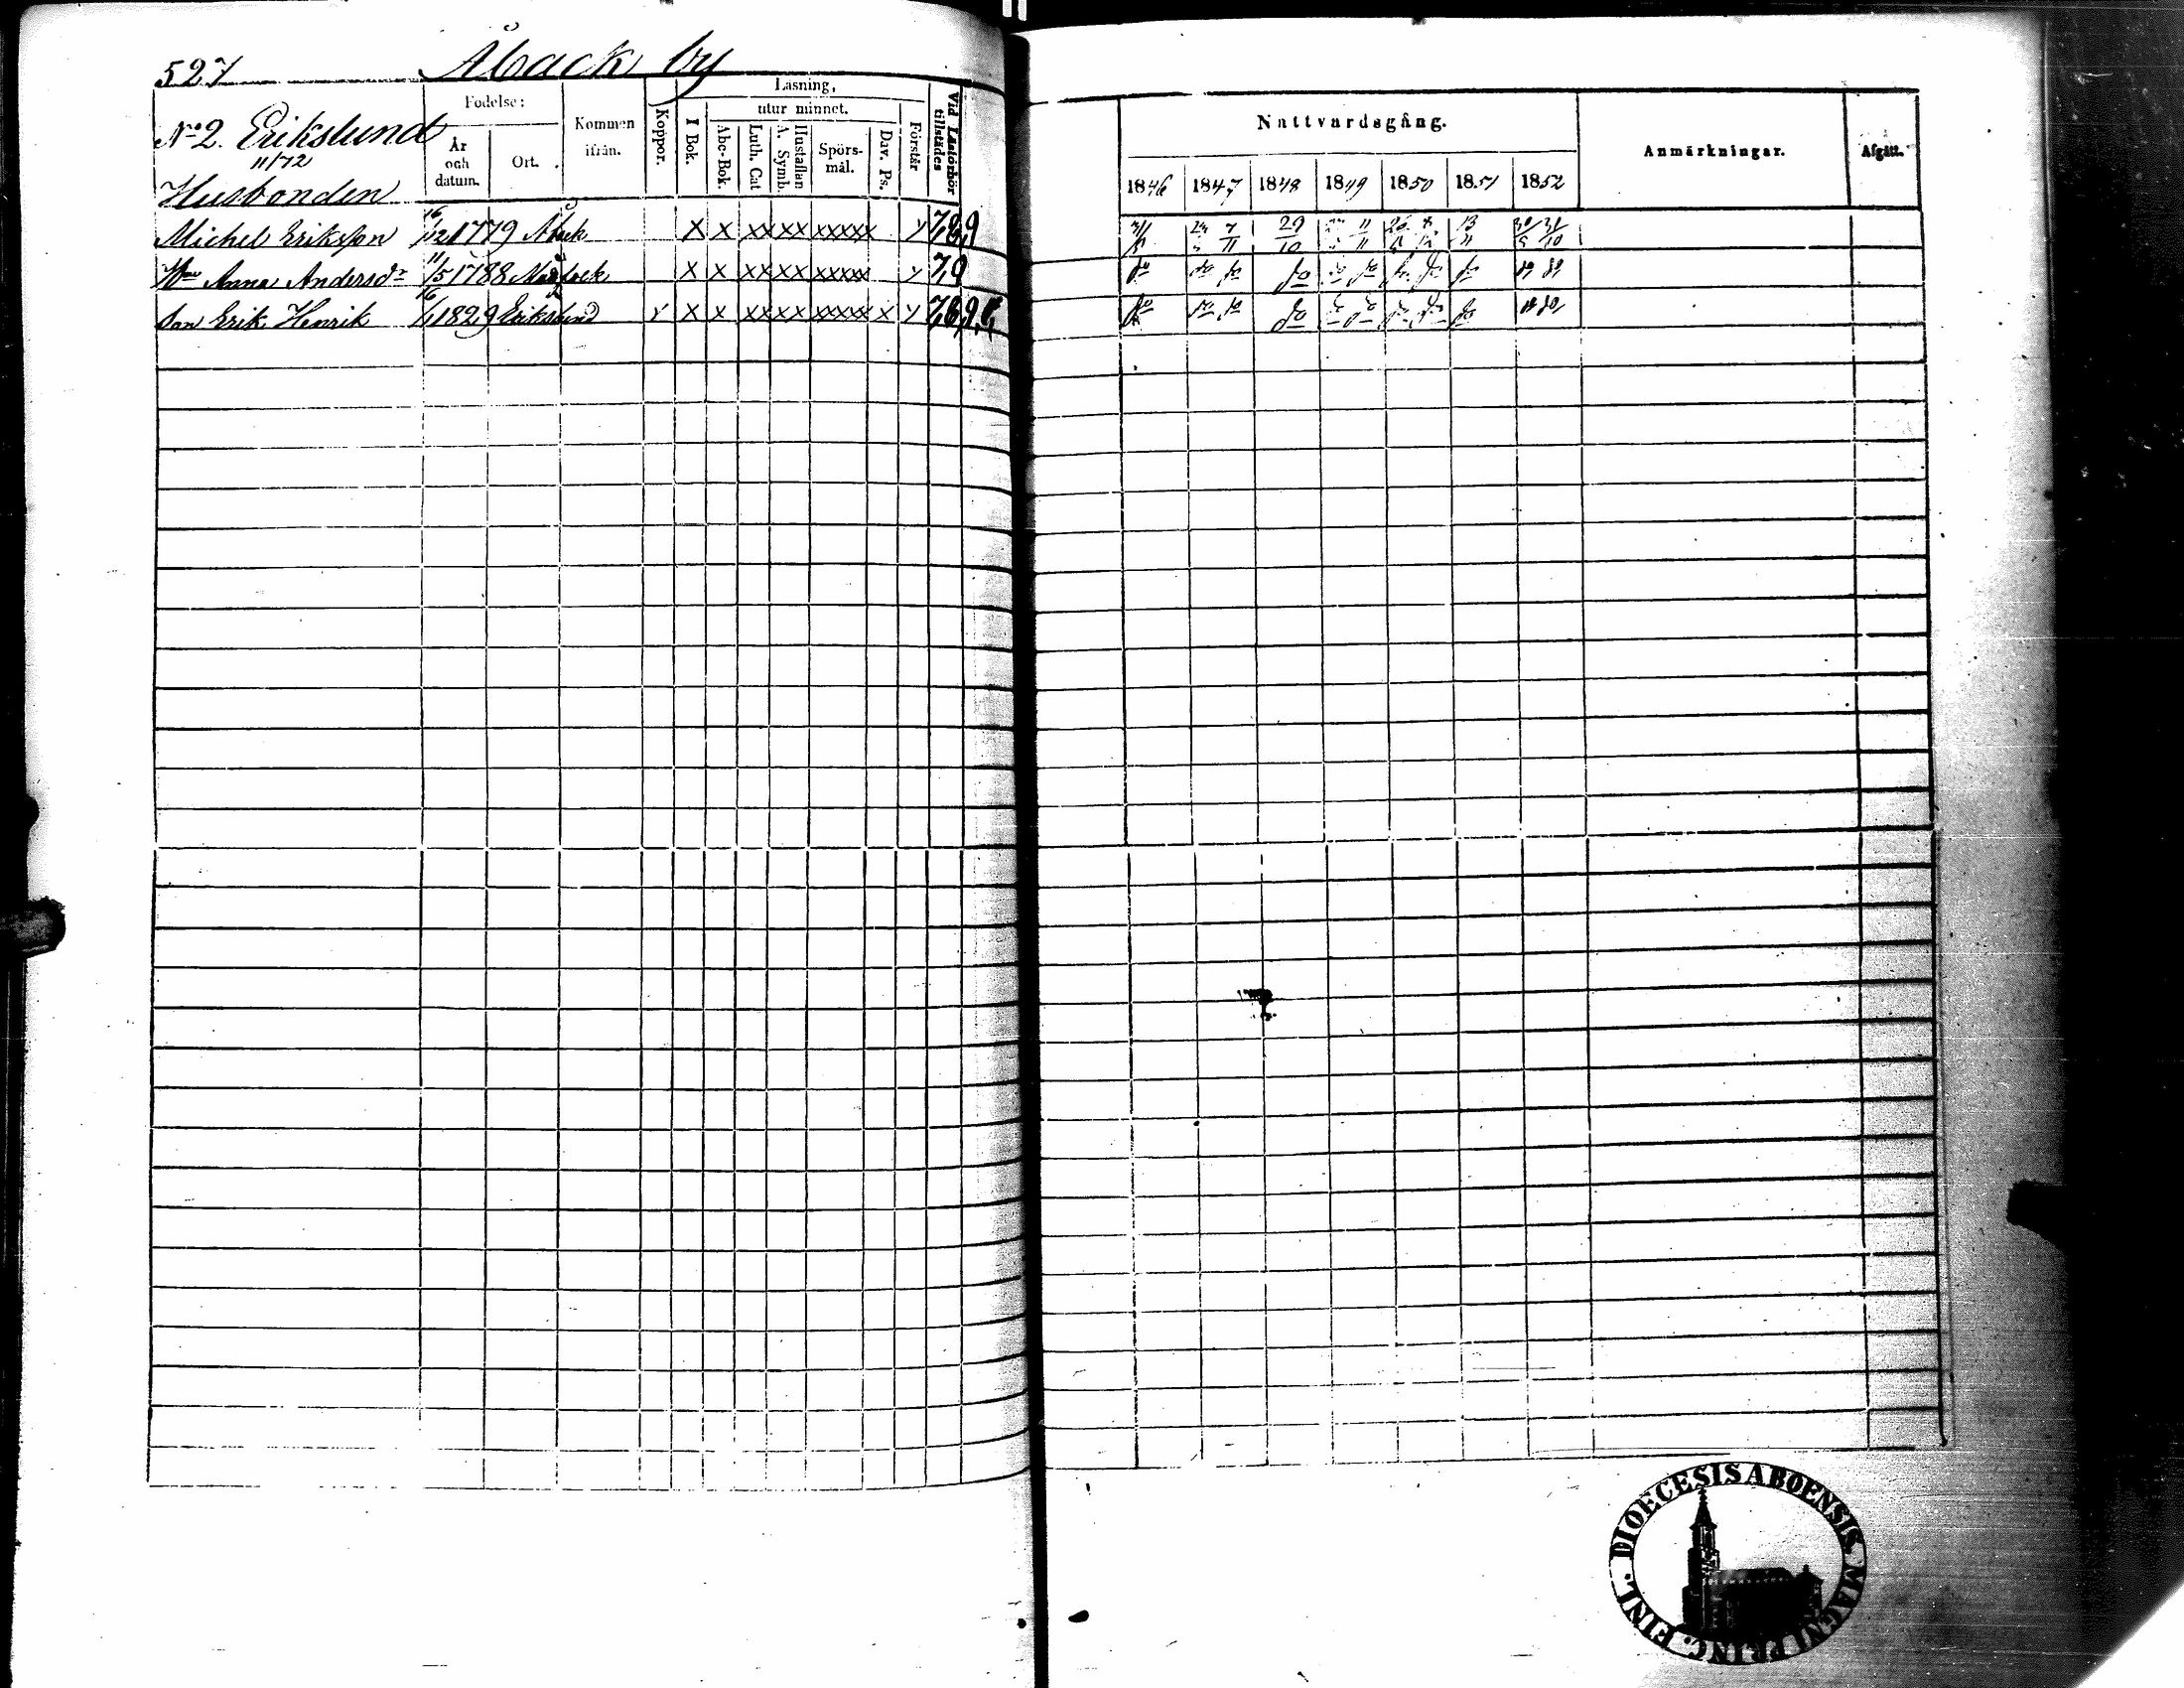 527 Åback by
Nº 2. Erikslund
11/72
Husbonden
Födelse:
År och datum.
Ort.
Kommen ifrån.
Koppor.
Läsning,
utur minnet.
I Bok.
Abc-Bok.
Luth. Cat
A. Symb.
Hustaflan
Spörs-mål.
Dav. Ps.
Förstår
Vid Läsförhör tillstädes
Michel Eriksson 16/12 1779 Åback X X XX XX XXXXX Y 7,8,9
Anna Andersdr 11/5 1788 X X XX XX XXXXX Y 7,9
Son Erik Henrik 1829 Erikslund Y X X XX XX XXXXX X Y 7,8,9,
Nattvardsgång.
1846 1847 1848 1849 1850 1851 1852
Anmärkningar.
Afgått.
29/10 13/11 30/5 31/10
do do do do do do
do do do do do do
DIOECESIS ABOENSIS. MAGNI PRINC. FINL.